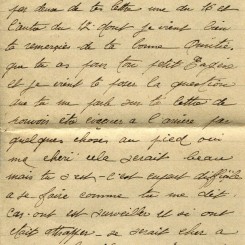 par deux de tes lettre une du 10 et
l'autre du 12 dont je vient bien
te remercié de ta bonne Amitié
que tu as pour ton petit
et je vient te poser la question
que tu me parle sur ta lettre de
pouvoir être évacuer a l'arrière par
quelques choses au pied oui
ma chéri cela serait beau
mais tu s'est c'est difficile
a se faire comme tu me dit
car ont est surveiller et si ont
était attrapper se serait cher a